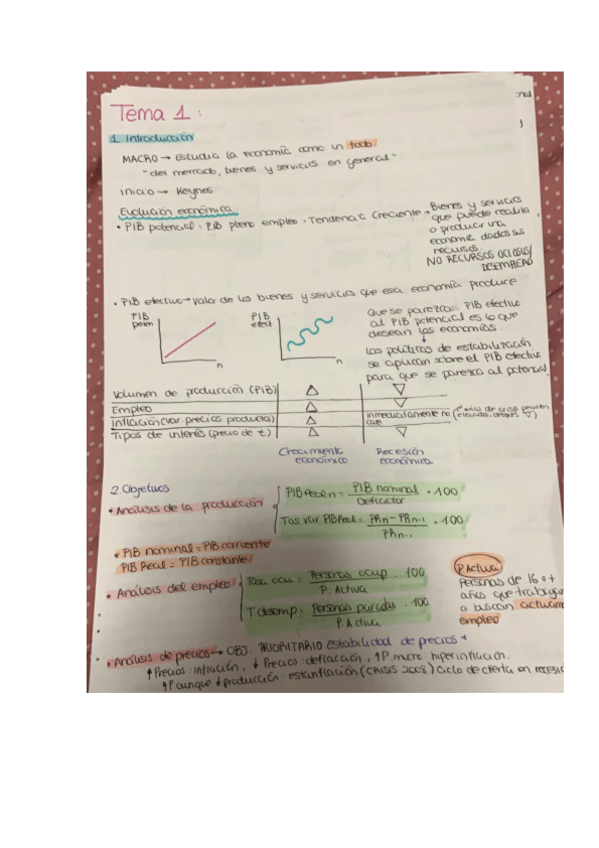 Tema 1:
1. Introducción
MACRO → Estudia la economía como un todo
"del mercado, bienes y servicios en general"
inicio → Keynes
Evolución económica
• PIB potencial = PIB pleno empleo. Tendencia creciente → Bienes y servicios
que puede realizar
o producir una
economía dados sus
recursos.
NO RECURSOS OCIOSOS/
DESEMPLEO
• PIB efectivo → valor de los bienes y servicios que esa economía produce
PIB
poten
n
PIB
efect
n
Que se parezca PIB efectivo
al PIB potencial es lo que
desean las economías.
Las políticas de estabilización
se aplican sobre el PIB efectivo
para que se parezca al potencial.
Volumen de producción (PIB) △ ▽
Empleo △ ▽
Inflación (var. precios producto) △ inmediatamente no
cae
Tipos de interés (precio de t) △ ▽
Crecimiento
económico
Recesión
económica
2. Objetivos
• Análisis de la producción
PIB Real n = PIB nominal / Deflactor · 100
Tas Var. PIB Real = PRn - PRn-1 / PRn-1 · 100
* PIB nominal = PIB corriente
PIB Real = PIB constante
• Análisis del empleo
Tasa ocu = Personas ocup / P. Activa · 100
T desemp = Personas paradas / P Activa · 100
P. Activa
Personas de 16 o +
años que trabajan
a buscan
empleo
• Análisis de precios → OBJ. PRIORITARIO estabilidad de precios *
↑ Precios: inflación, ↓ Precios: deflación, ↑P. mucho hiperinflación.
↑P aunque ↓ producción: estanflación (CRISIS 2008) Ciclo de oferta en